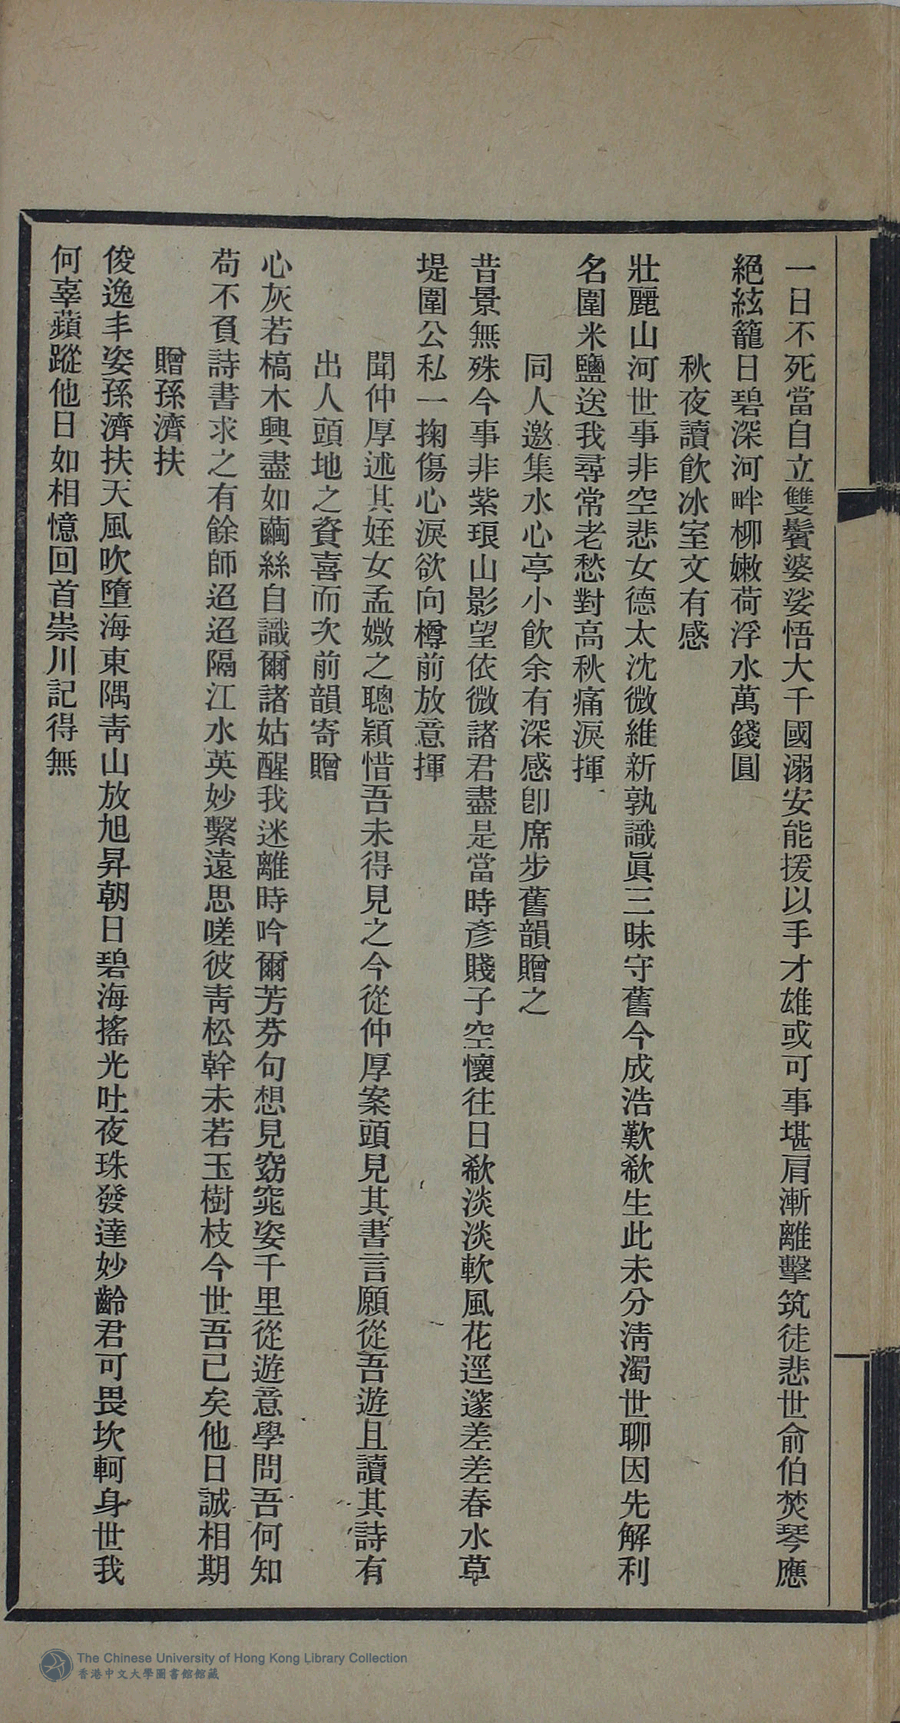 一日不死當自立雙鬢婆娑悟大千國溺安能援以手才雄或可事堪肩漸離擊筑徒悲世俞伯焚琴應
絕絃籠日碧深河畔柳嫩荷浮水萬錢圓
秋夜讀飲冰室文有感
壯麗山河世事非空悲女德太沈微維新孰識眞三昧守舊今成浩歎欷生此未分淸濁世聊因先解利
名圍米鹽送我尋常老愁對高秋痛淚揮
同人邀集水心亭小飲余有深感卽席步舊韻贈之
昔景無殊今事非紫琅山影望依微諸君盡是當時彥賤子空懷往日欷淡淡軟風花逕邃差差春水草
堤圍公私一掬傷心淚欲向樽前放意揮
聞仲厚述其姪女孟媺之聰穎惜吾未得見之今從仲厚案頭見其書言願從吾遊且讀其詩有
出人頭地之資喜而次前韻寄贈
心灰若槁木興盡如繭絲自識爾諸姑醒我迷離時吟爾芳芬句想見窈窕姿千里從遊意學問吾何知
苟不負詩書求之有餘師迢迢隔江水英妙繫遠思嗟彼靑松幹未若玉樹枝今世吾已矣他日誠相期
贈孫濟扶
俊逸丰姿孫濟扶天風吹墮海東隅靑山放旭昇朝日碧海搖光吐夜珠發達妙齡君可畏坎軻身世我
何辜蘋蹤他日如相憶回首崇川記得無
The Chinese University of Hong Kong Library Collection
香港中文大學圖書館館藏